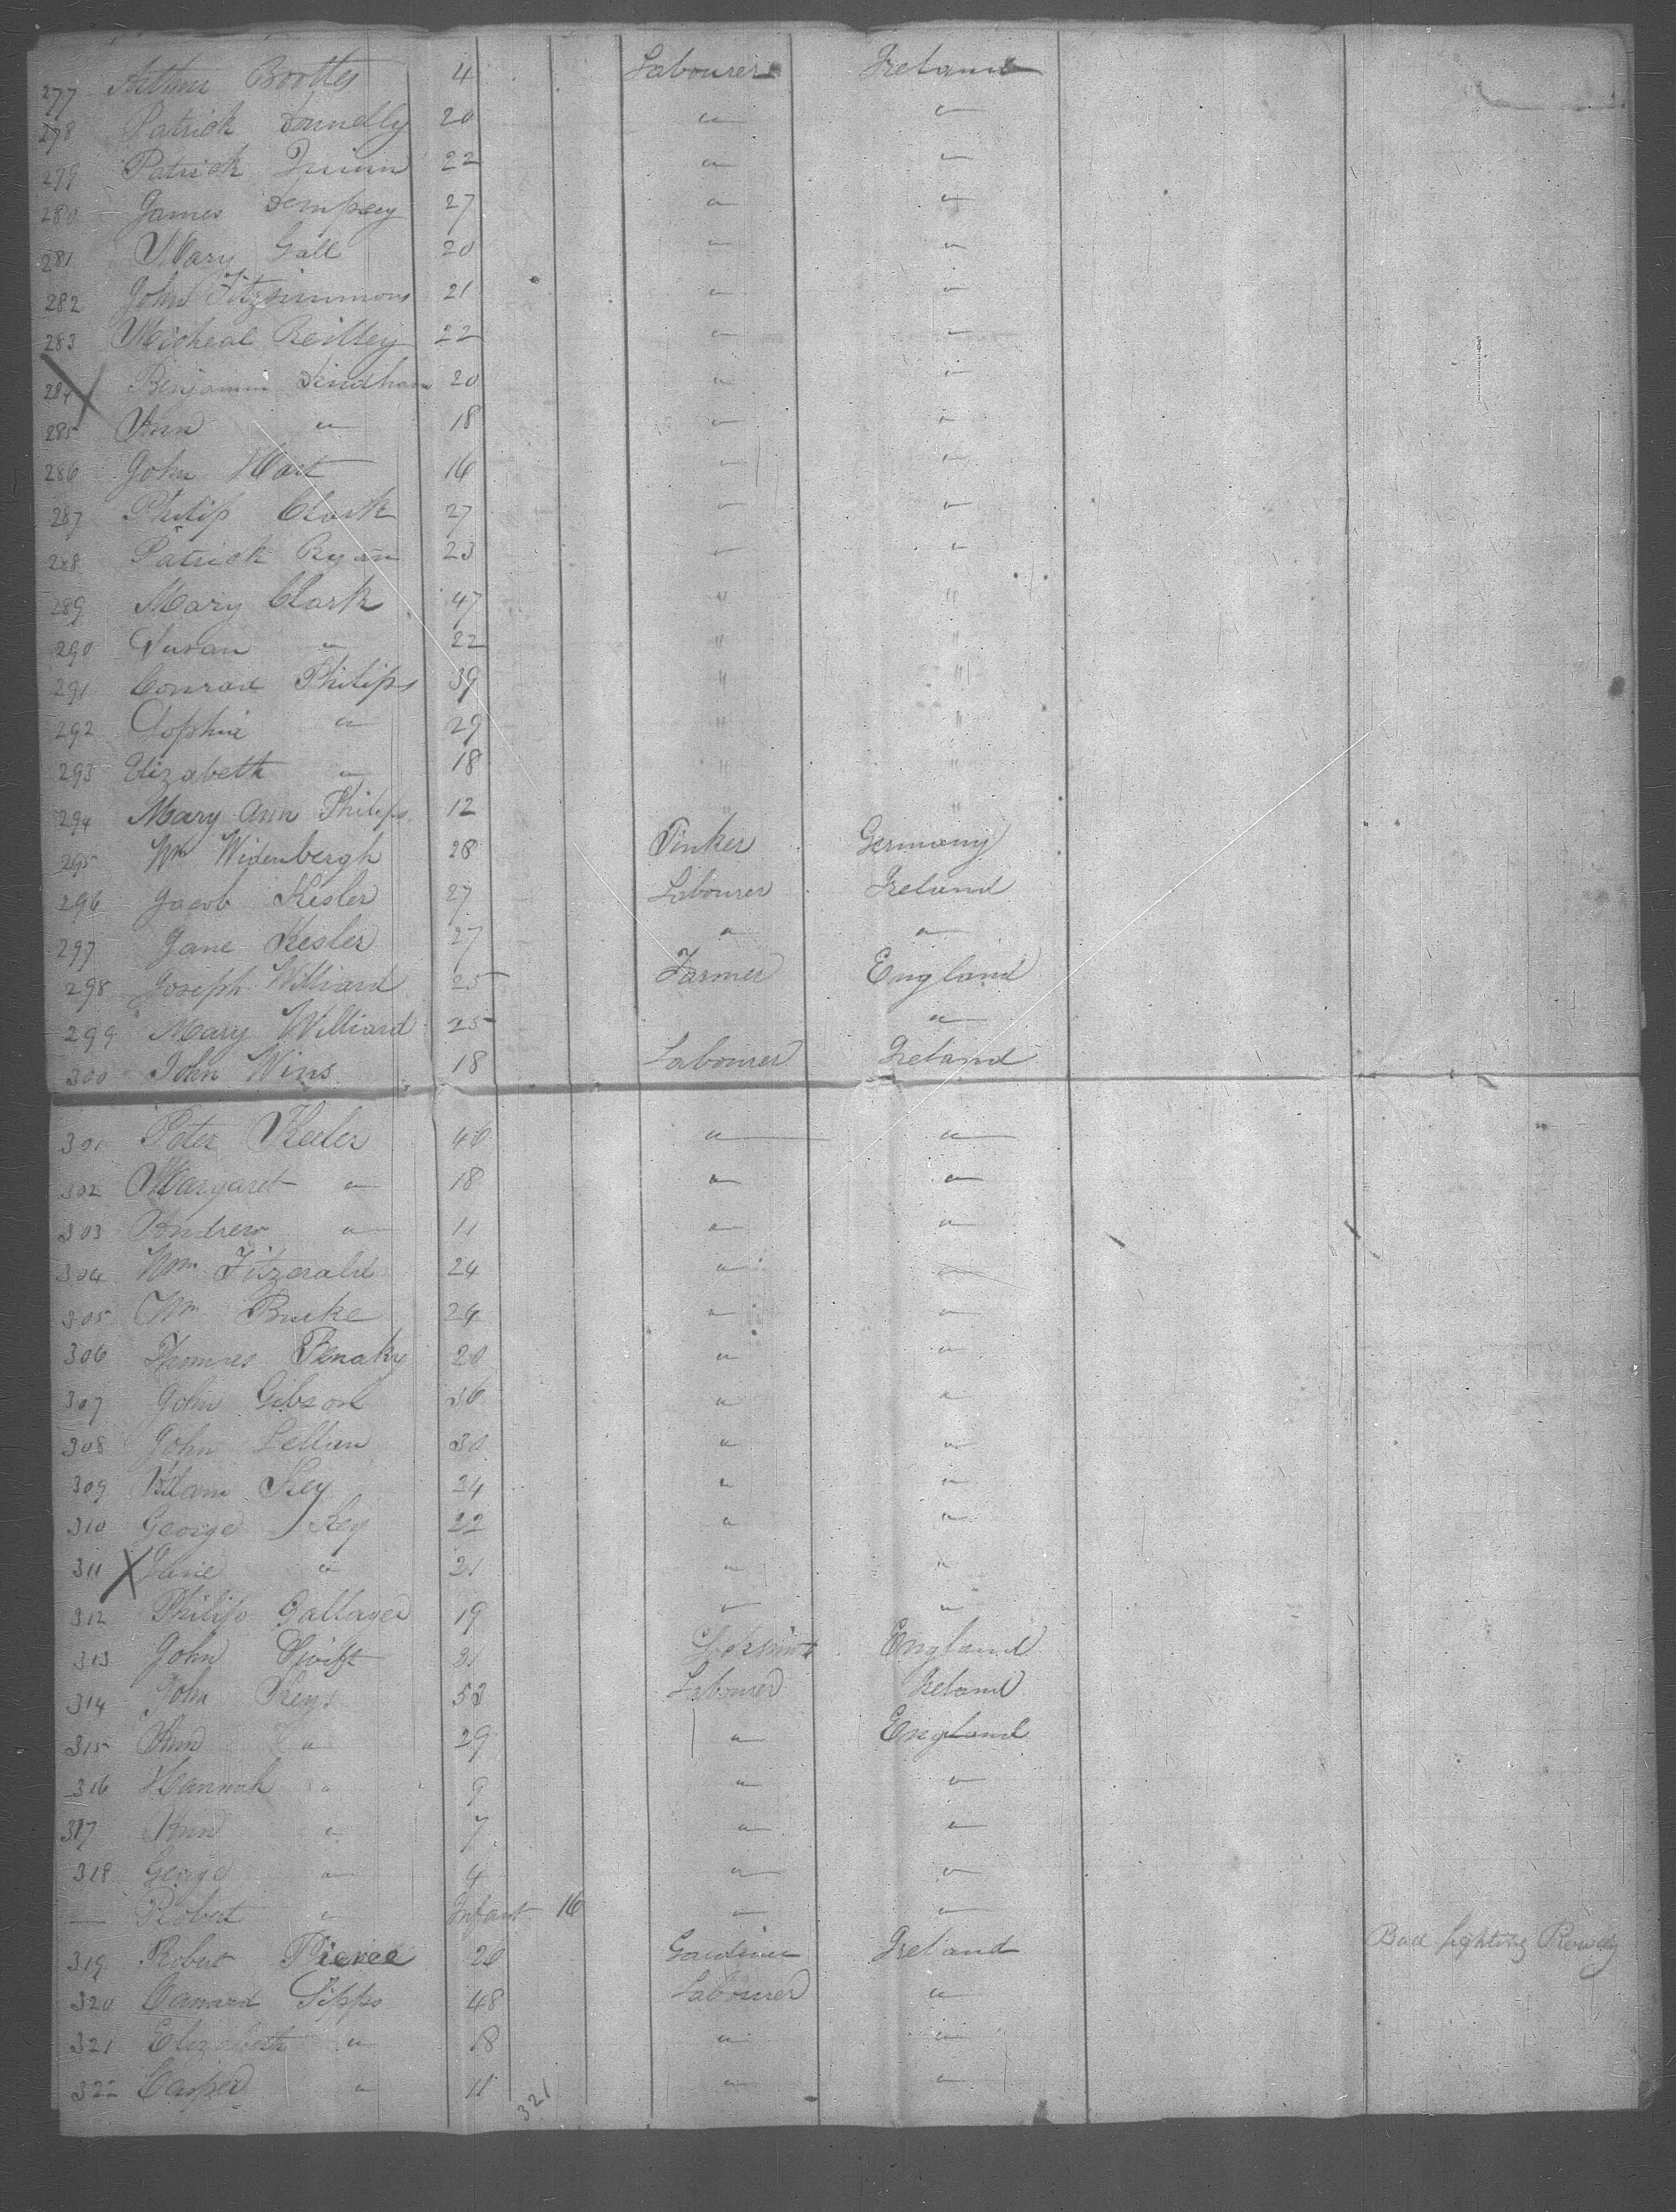 277 Arthur Boottes 4 Labourer Ireland
278 Patrick Donnelly 20 " "
279 Patrick Quinn 22 " "
280 James Dempsey 27 " "
281 Mary Gall 20 " "
282 John Fitzsimmons 21 " "
283 Micheal Reilley 22 " "
284 X Benjamin 20 " "
285 Ann " 18 " "
286 John Hart 16 " "
287 Philip Clark 27 " "
288 Patrick Ryan 23 " "
289 Mary Clark 47 " "
290 Susan " 22 " "
291 Conrad Philips 39 " "
292 Sophie " 29 " "
293 Elizabeth " 18 " "
294 Mary Ann Philips 12 " "
295 Wm Widenbergh 28 Tinker Germany
296 Jacob Kesler 27 Labourer Ireland
297 Jane Kesler 27 " "
298 Joseph Williard 25 Farmer England
299 Mary Williard 25 "
300 John Wins 18 Labourer Ireland
301 Peter Keeler 40 " "
302 Margaret " 18 " "
303 Andrew " 11 " "
304 Wm Fitzerald 24 " "
305 Wm Burke 24 " "
306 Thomas Penaky 20 " "
307 John Gibson 36 " "
308 John Lellian 30 " "
309 Adam Key 34 " "
310 George Key 22 " "
311 X Jane " 21 " "
312 Philip Gallager 19 " "
313 John Swift 31 England
314 John Keys 53 Labourer Ireland
315 Ann " 29 " England
316 Hannah " 9 " "
317 Ann " 7 " "
318 George " 4 " "
— Robert " Infant 16 " "
319 Robert Pierce 26 Gardiner Ireland Bad fighting Rowdy
320 Conrad Sipps 48 Labourer "
321 Elizabeth " 18 " "
322 Casper " 11 " "
321